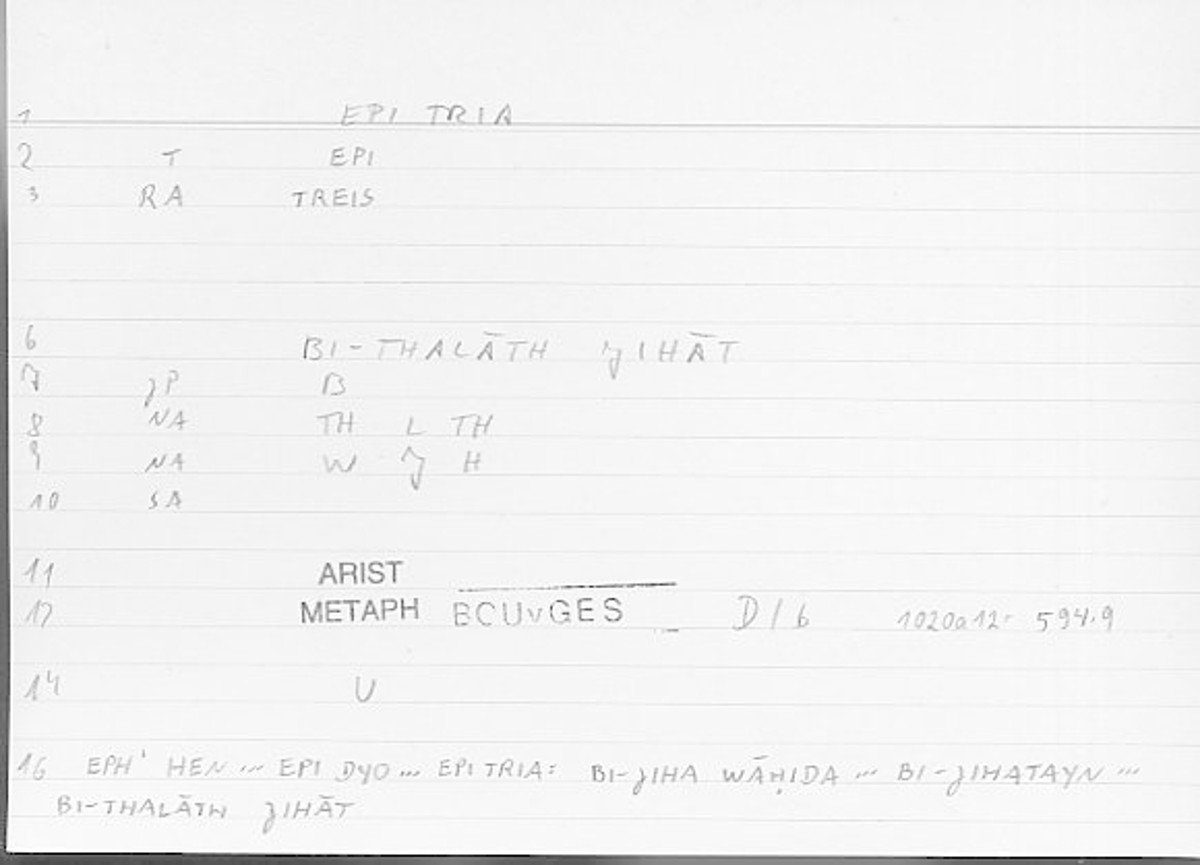 1 EPI TRIA
2 T EPI
3 RA TREIS
6 BI-THALĀTH JIHĀT
7 JP B
8 NA TH L TH
9 NA W J H
10 SA
11 ARIST
12 METAPH BCUvGES D/b 1020a12- 594.9
14 U
16 EPH' HEN ... EPI DYO ... EPI TRIA: BI-JIHA WĀḤIDA ... BI-JIHATAYN ...
BI-THALĀTH JIHĀT